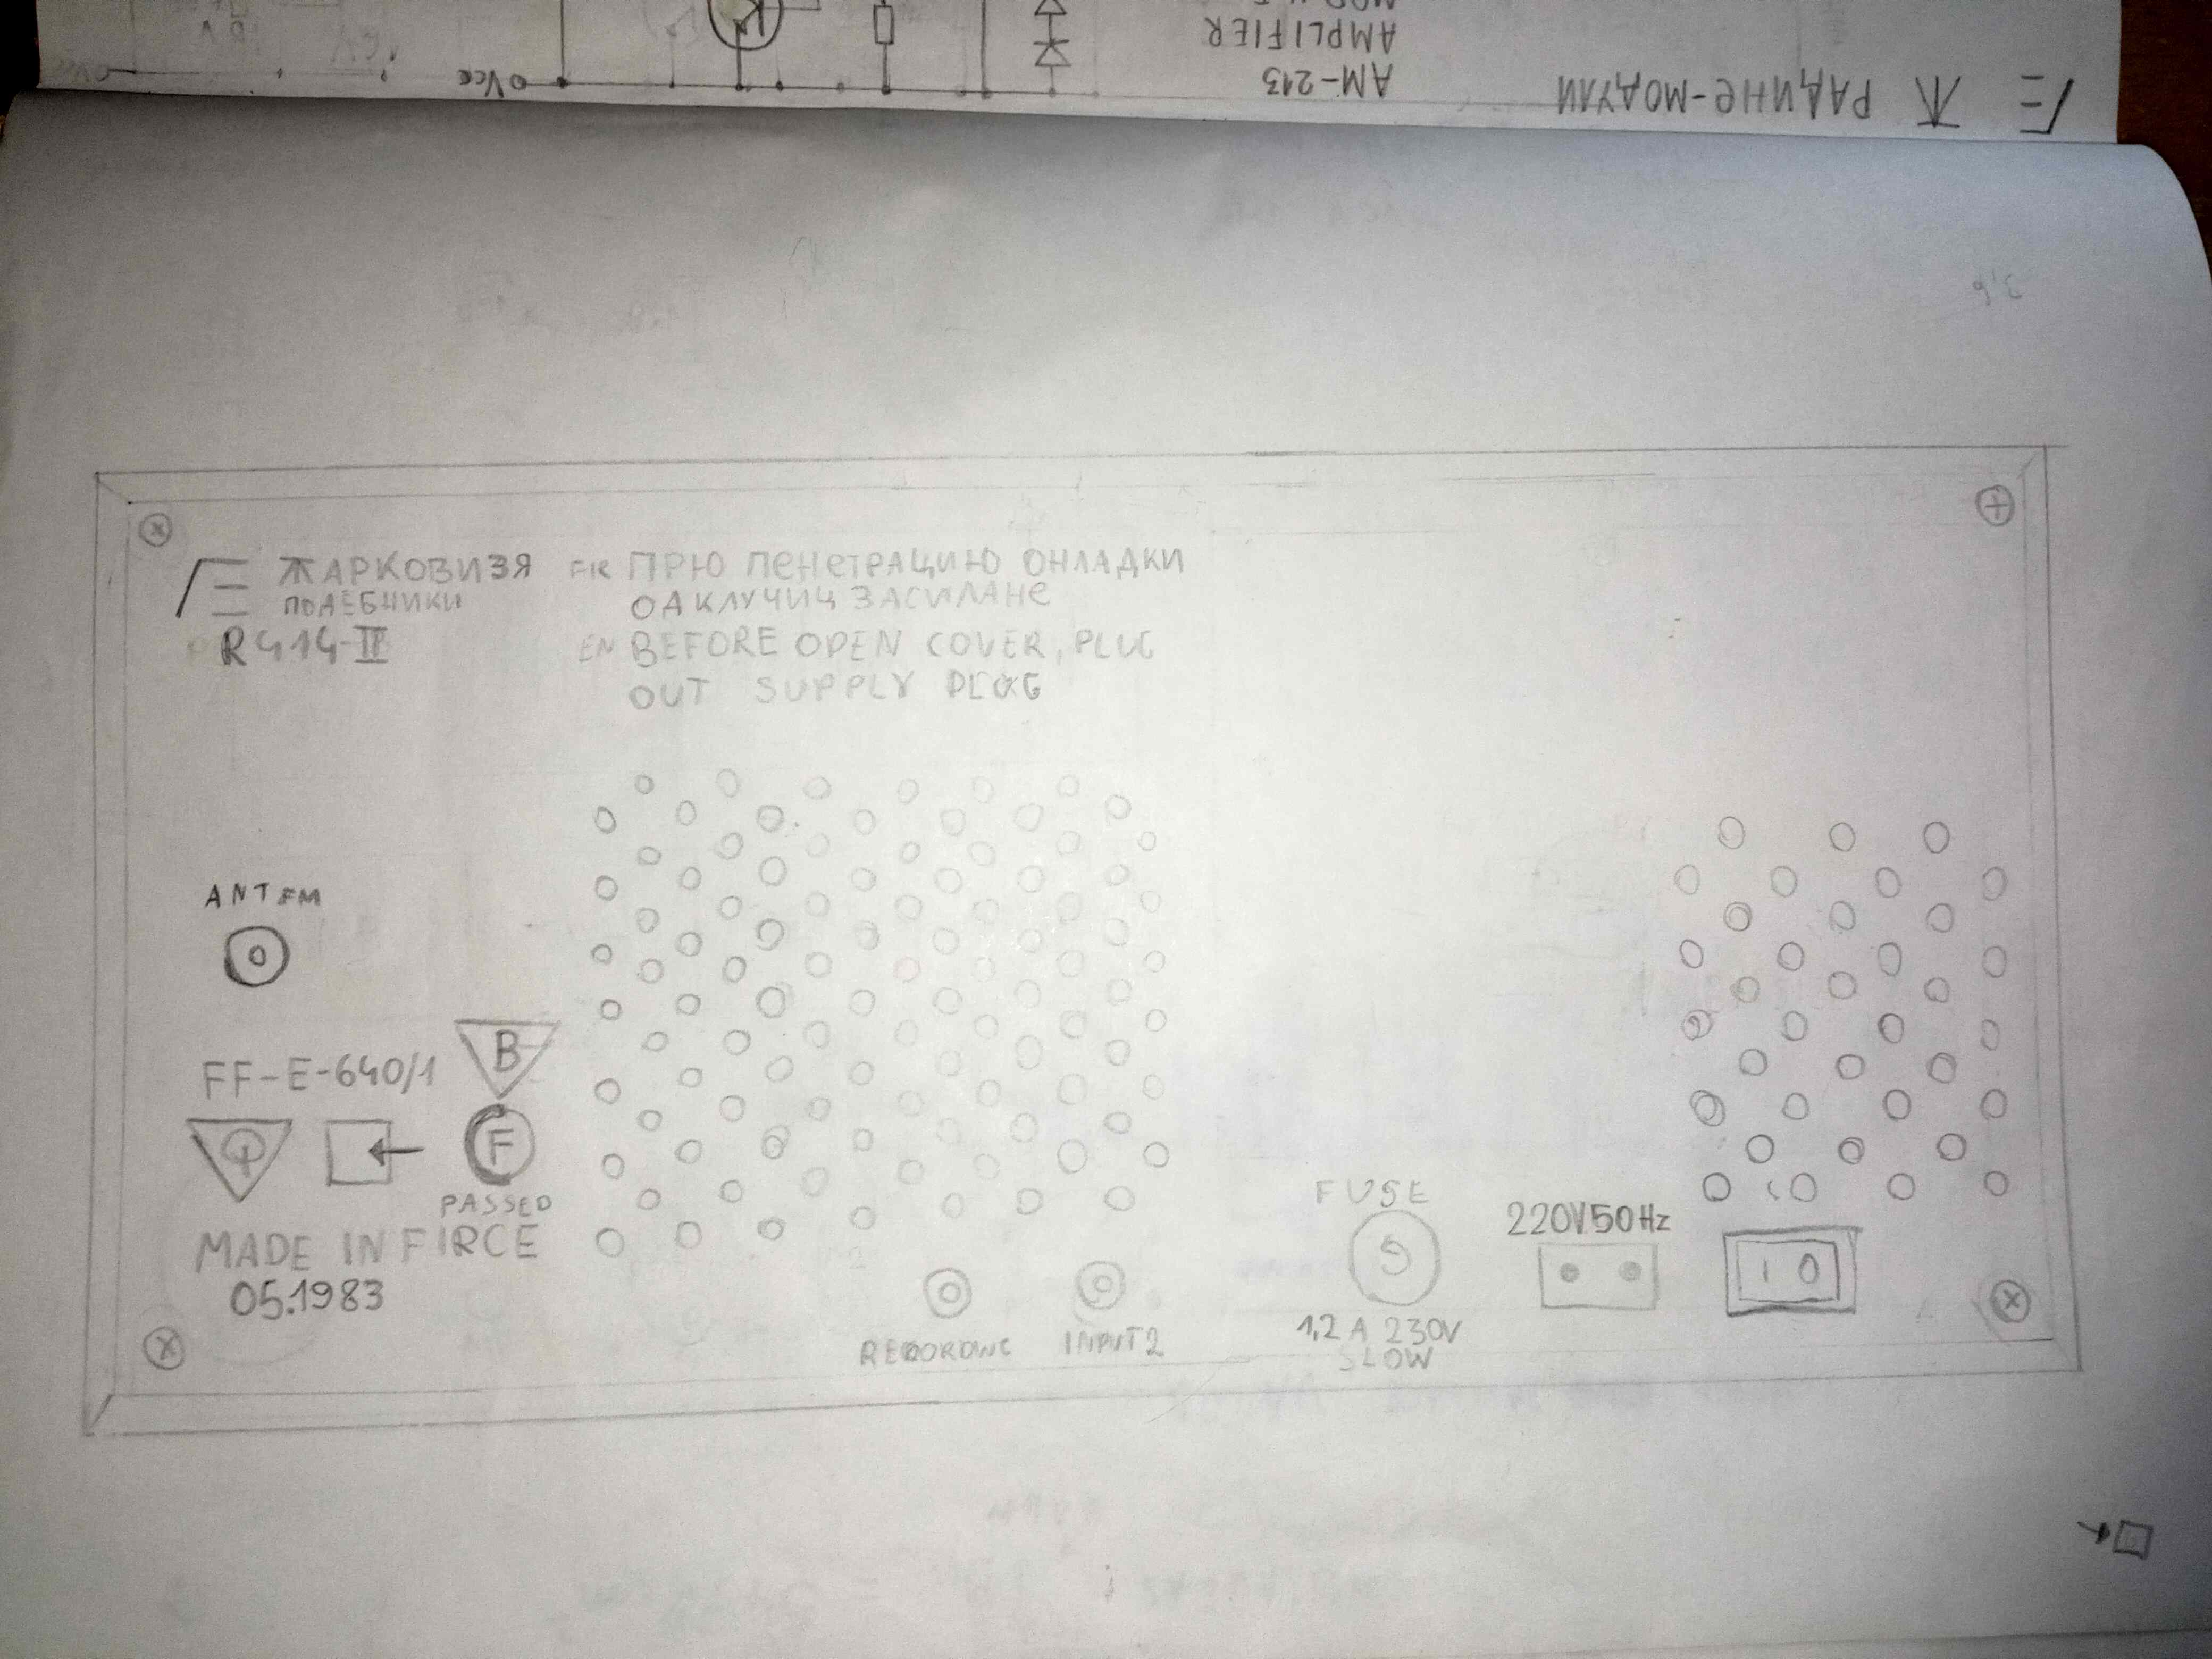 AM-213
AMPLIFIER
Ж РАДИНЕ-МОДУЛИ
Vcc
ЖАРКОВИЗЯ
ПОДЕБНИКИ
R414-II
FIR ПРЮ ПЕНЕТРАЦИЮ ОНЛАДКИ
ОДКЛУЧИЦ ЗАСИЛАНЕ
EN BEFORE OPEN COVER, PLUG
OUT SUPPLY PLUG
ANT FM
FF-E-640/1
B
F
PASSED
MADE IN FIRCE
05.1983
RECORDING
INPUT 2
FUSE
1,2 A 230V
SLOW
220V 50Hz
I O